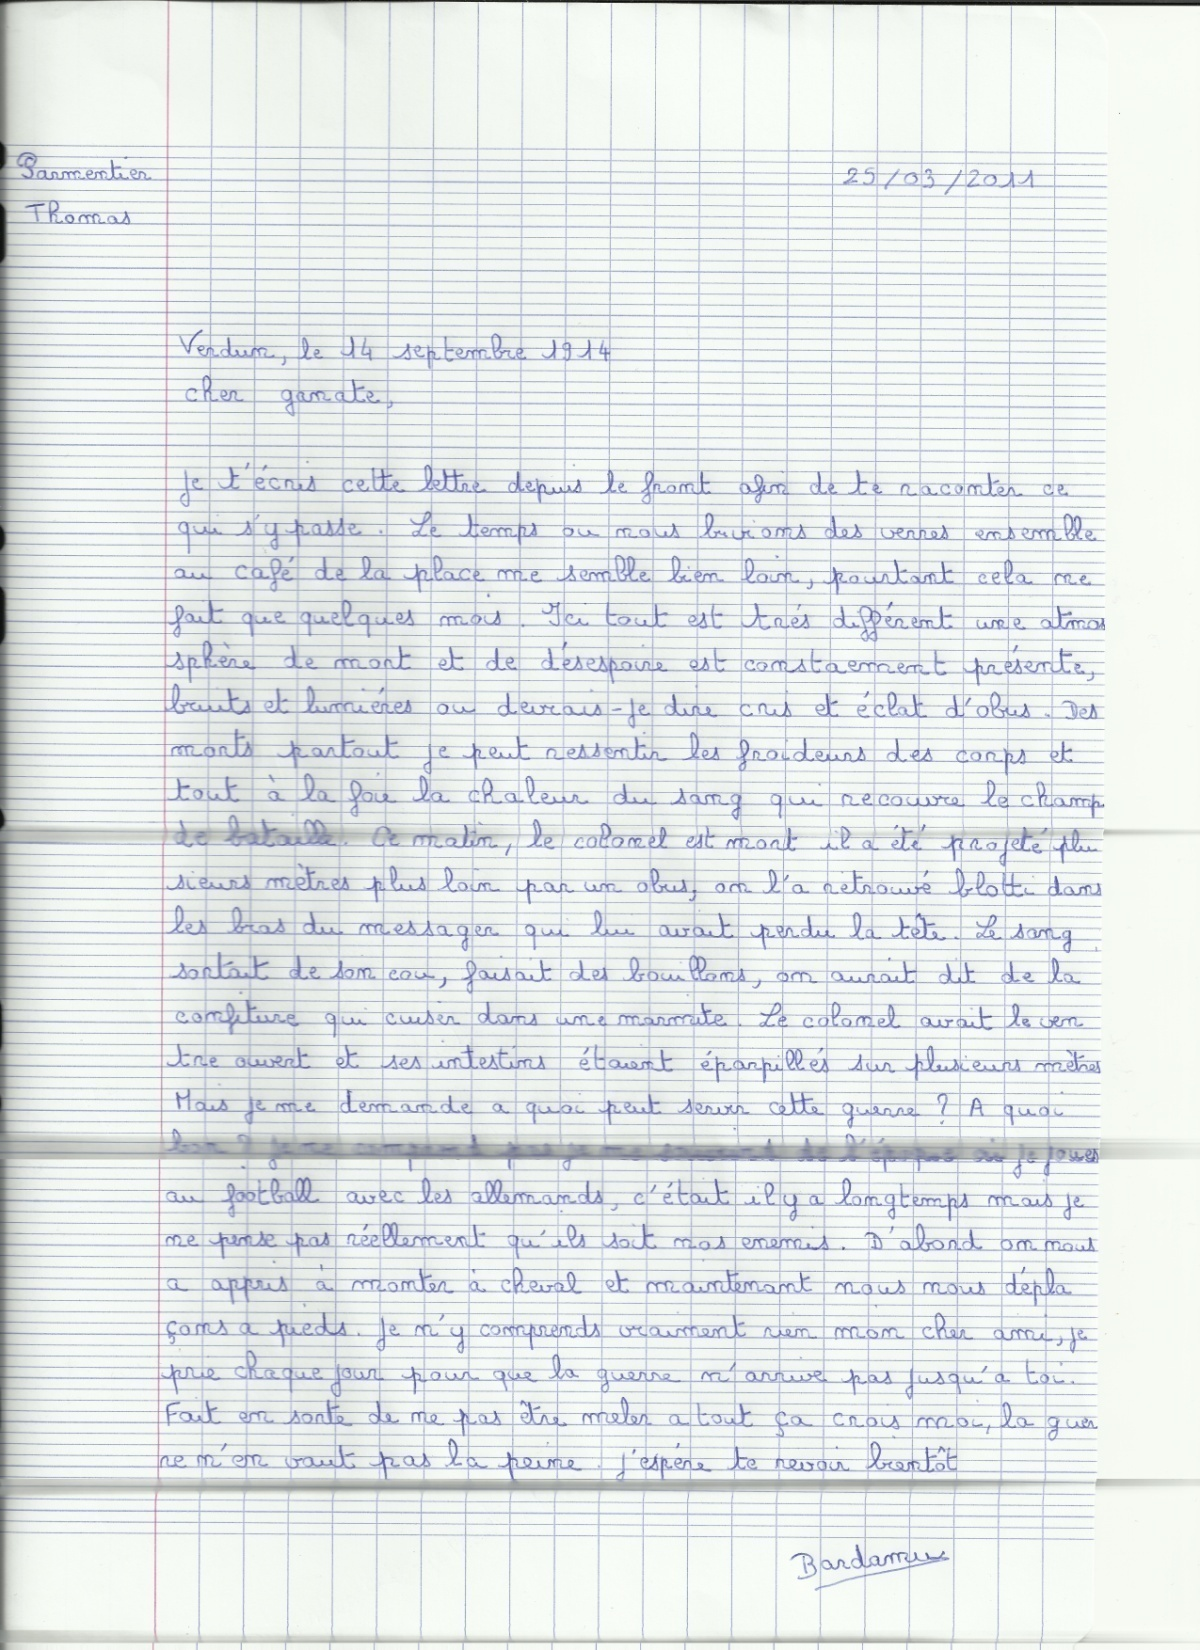 Parmentier
25/03/2011
Thomas
Verdun, le 14 septembre 1914
cher ganate,
Je t'écris cette lettre depuis le front afin de te raconter ce
qui s'y passe. Le temps ou nous buvions des verres ensemble
au café de la place me semble bien loin, pourtant cela ne
fait que quelques mois. Ici tout est trés différent une atmos
sphère de mort et de désespoire est constaemment présente,
bruits et lumiéres ou devrais-je dire cris et éclat d'obus. Des
morts partout je peut ressentir les froideurs des corps et
tout à la foie la chaleur du sang qui recouvre le champ
de bataille. Ce matin, le colonel est mort il a été projeté plu
sieurs mètres plus loin par un obus, on l'a retrouvé blotti dans
les bras du messager qui lui avait perdu la tête. Le sang
sortait de son cou, faisait des bouillons, on aurait dit de la
confiture qui cuiser dans une marmite. Le colonel avait le ven
tre ouvert et ses intestins étaient éparpillés sur plusieurs mètres
Mais je me demande a quoi peut servir cette guerre ? A quoi
bon ? je ne comprend pas je me souvient de l'époque où je joues
au football avec les allemands, c'était il y a longtemps mais je
ne pense pas réellement qu'ils soit nos enemis. D'abord on nous
a appris à monter à cheval et maintenant nous nous dépla
çons a pieds. Je n'y comprends vraiment rien mon cher ami, je
prie chaque jour pour que la guerre n'arrive pas jusqu'à toi.
Fait en sorte de ne pas être meler a tout ça crois moi, la guer
re n'en vaut pas la peine. j'espére te revoir bientôt
Bardamu